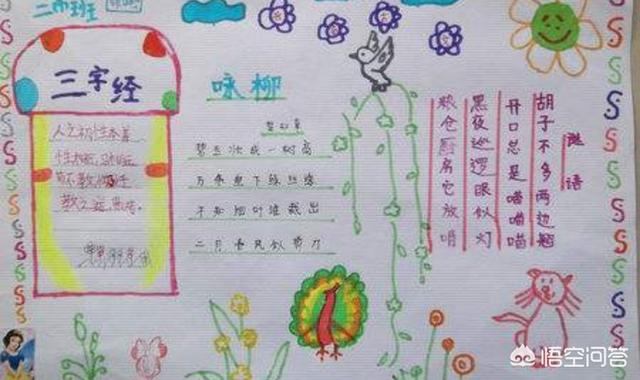 班
三字经
人之初性本善
性相近习相远
咏柳
碧玉妆成一树高
万条垂下绿丝绦
不知细叶谁裁出
二月春风似剪刀
谜语
胡子不多两边翘
开口总是喵喵喵
黑夜巡逻眼似灯
粮仓厨房它放哨
悟空问答